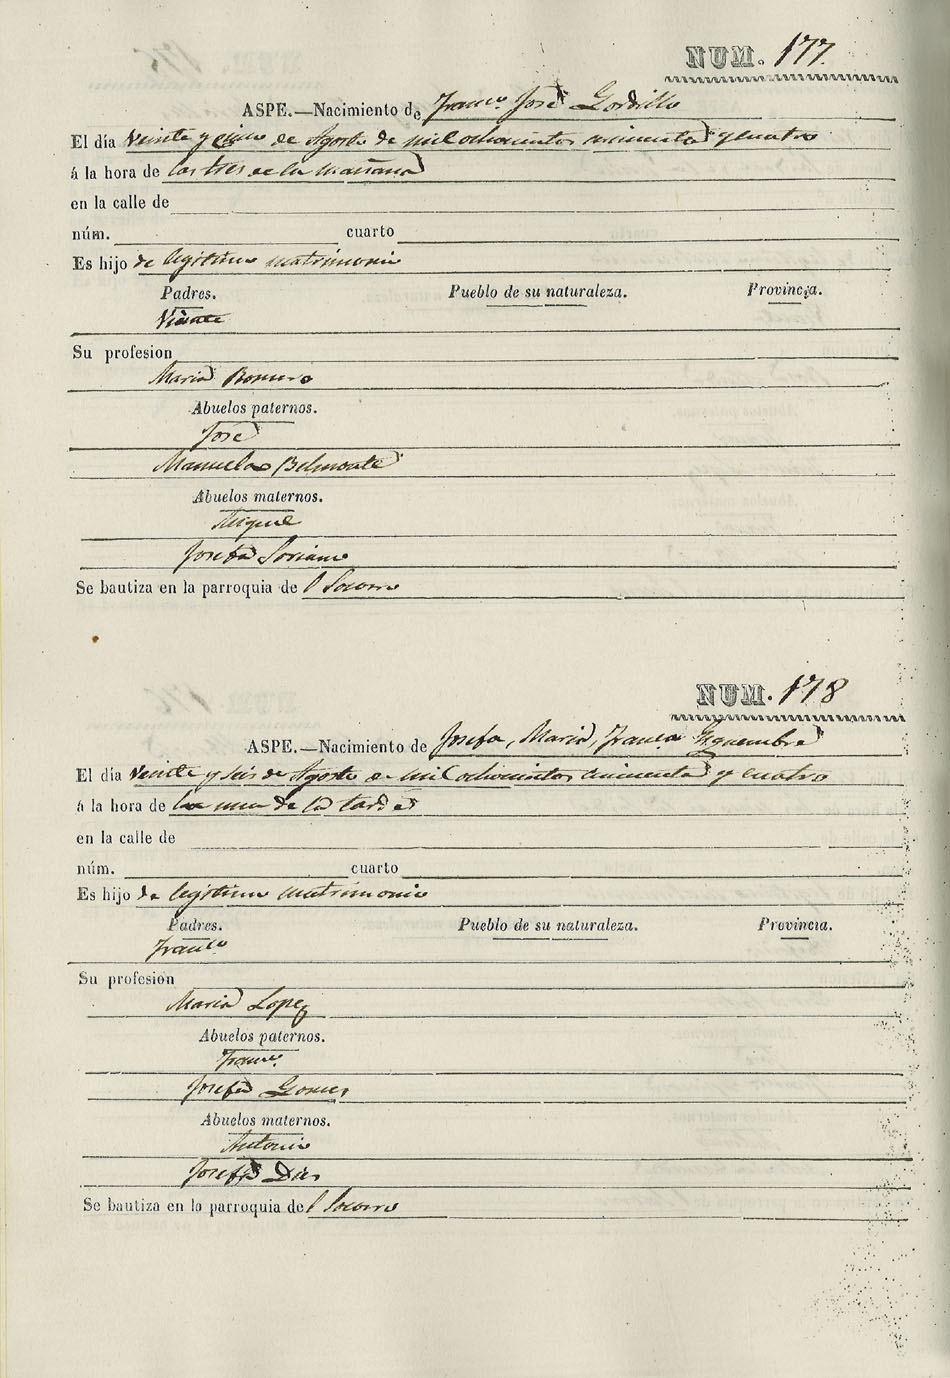 NUM. 177.
ASPE.—Nacimiento de Franco José Gordillo
El día Veinte y cinco de Agosto de mil ochocientos cincuenta y cuatro
á la hora de las tres de la mañana
en la calle de
núm. cuarto
Es hijo de legítimo matrimonio
Padres. Pueblo de su naturaleza. Provincia.
Vicente
Su profesion
Maria Romero
Abuelos paternos.
José
Manuela Belmonte
Abuelos maternos.
Miguel
Josefa Soriano
Se bautiza en la parroquia de l Socorro
NUM. 178
ASPE.—Nacimiento de Josefa, Maria, Franca
El día Veinte y seis de Agosto de mil ochocientos cincuenta y cuatro
á la hora de la una de la tarde
en la calle de
núm. cuarto
Es hijo de legitimo matrimonio
Padres. Pueblo de su naturaleza. Provincia.
Franco
Su profesion
Maria Lopez
Abuelos paternos.
Franco
Josefa Gomes
Abuelos maternos.
Antonio
Josefa Dies
Se bautiza en la parroquia de l Socorro